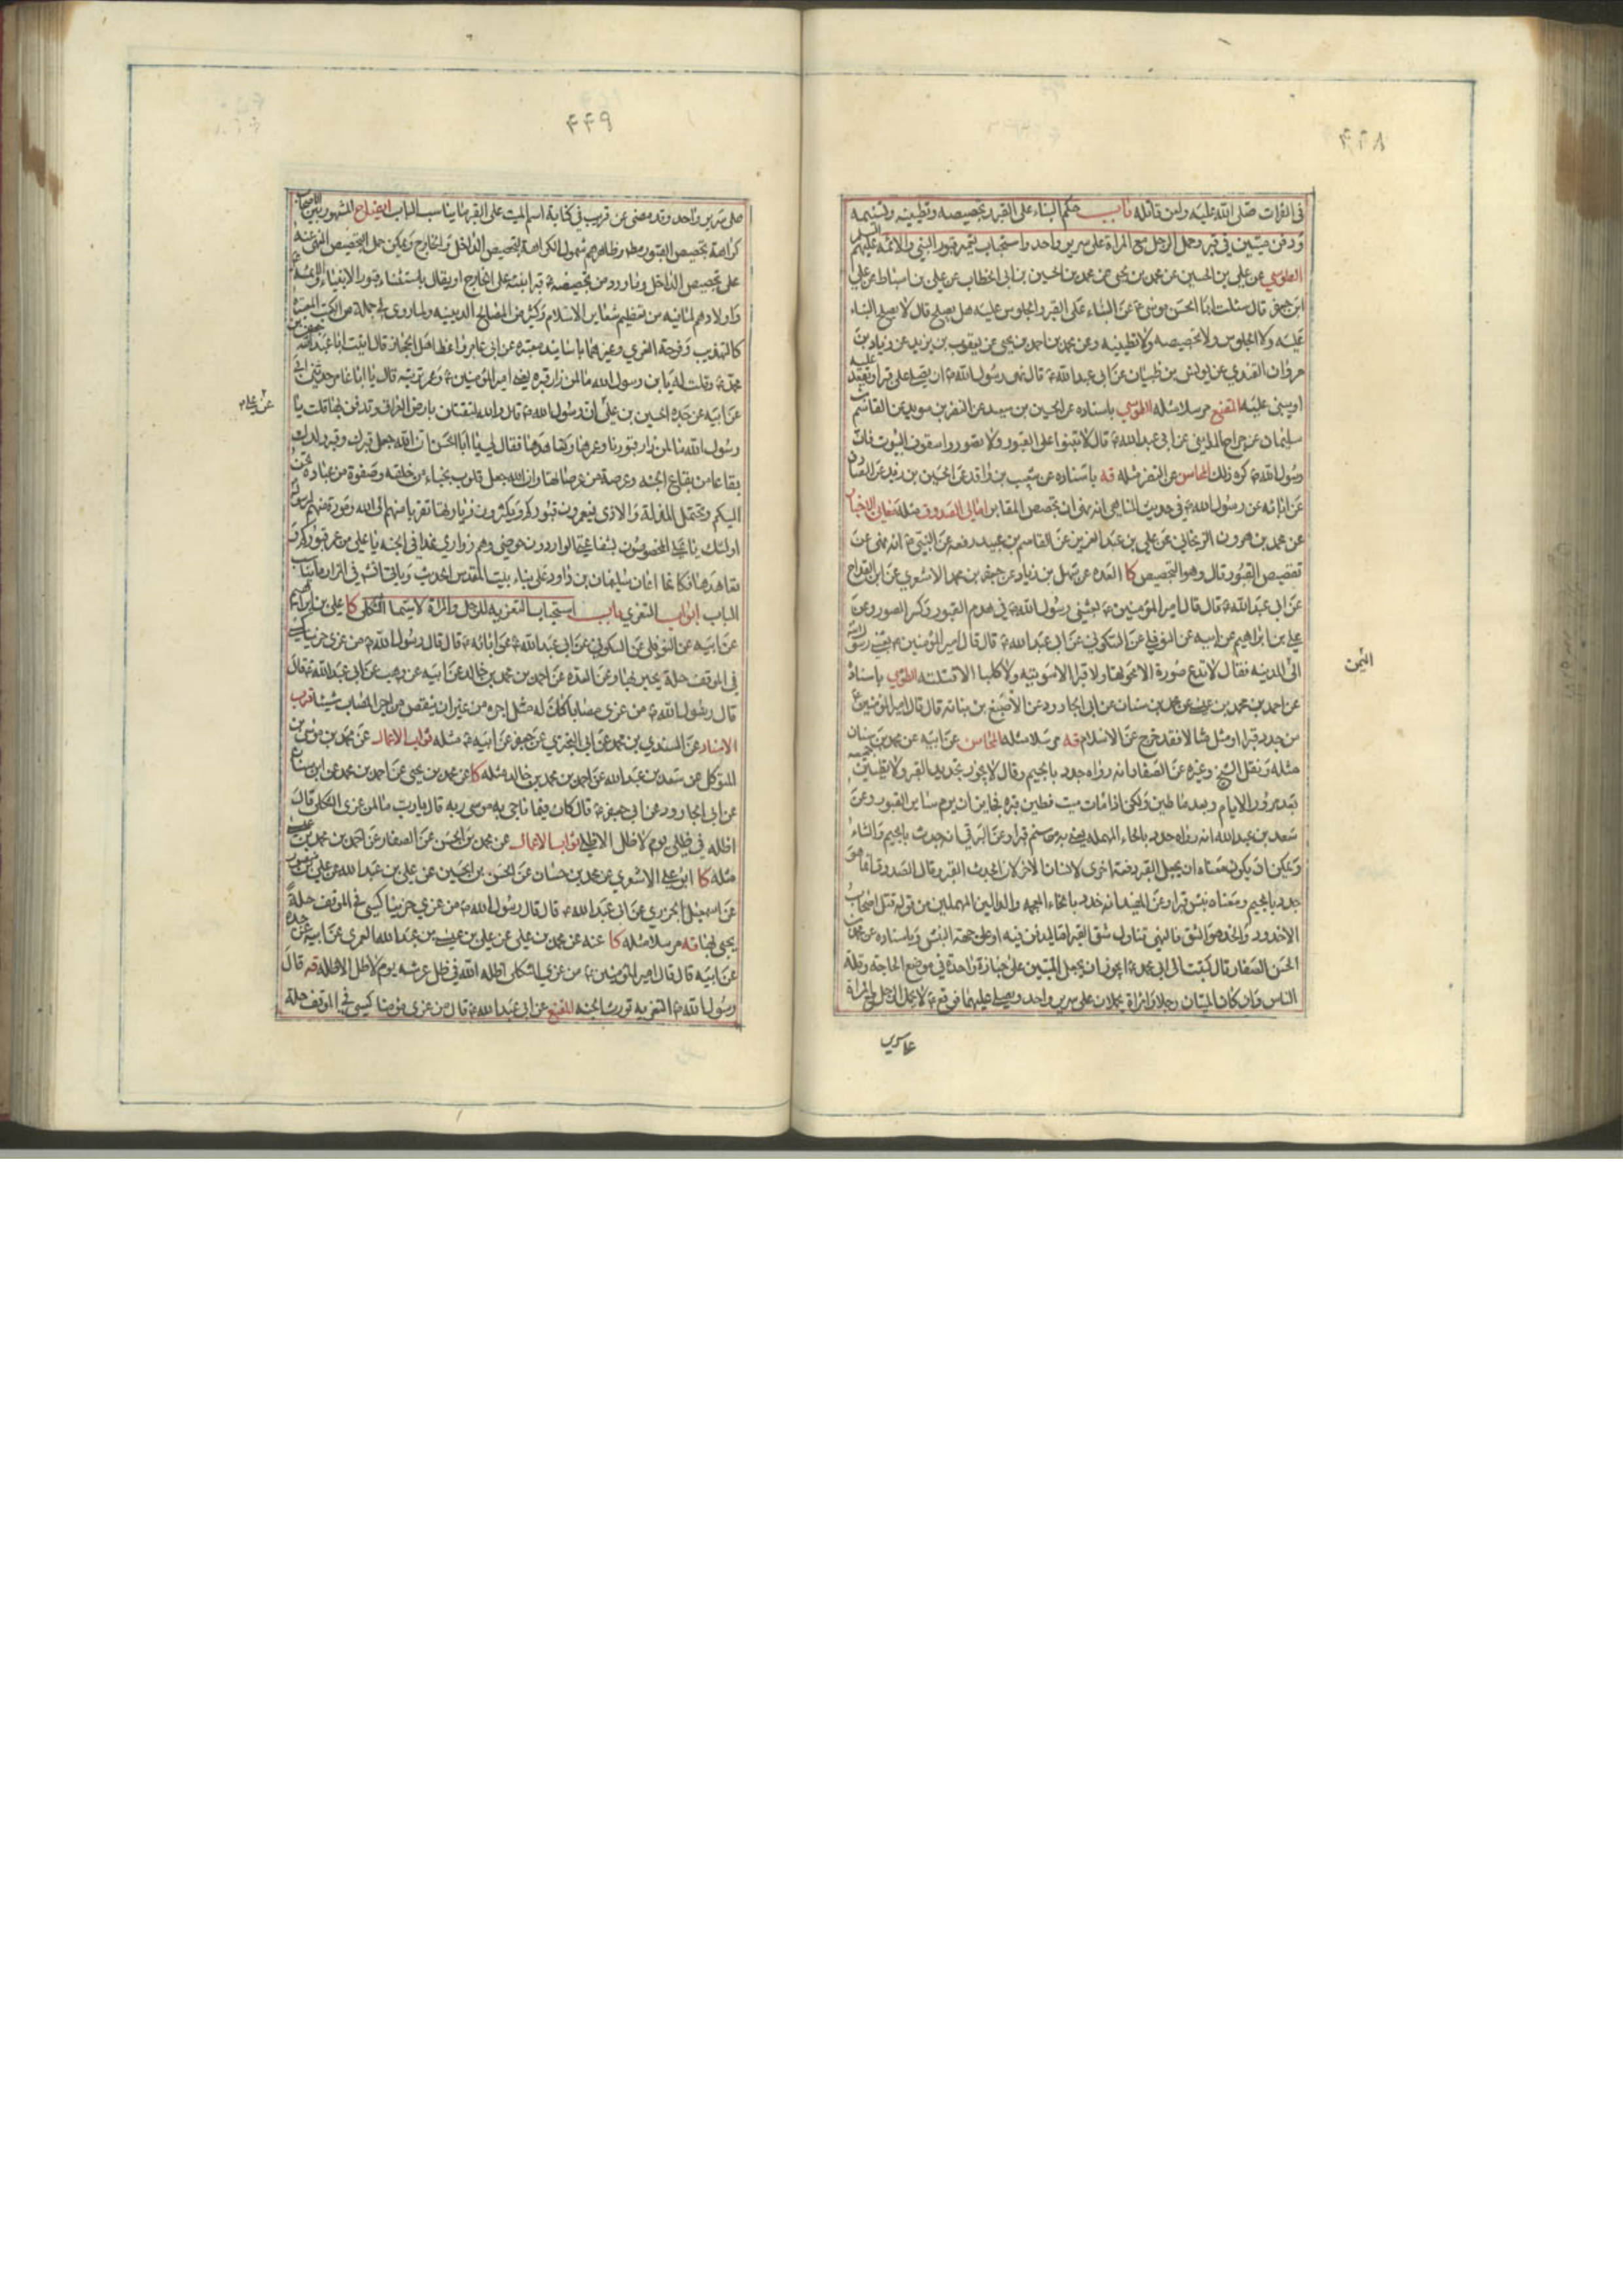 ٤٤٨
فى الفرات صلى الله عليه ولعن قاتله باب حكم البناء على القبر وتجصيصه وتطيينه وتسنيمه
ودفن ميتين فى قبر وحمل الرجل مع المراة على سرير واحد واستحباب تعمير قبور النبى والائمة عليهم السلم
الطوسي عن علي بن الحسين عن محمد بن يحيى عن محمد بن الحسين بن ابى الخطاب عن علي بن اسباط عن علي
ابن جعفر قال سئلت ابا الحسن موسى ع عن البناء على القبر والجلوس عليه هل يصلح قال لا يصلح البناء
عليه ولا الجلوس ولا تجصيصه ولا تطيينه وعن محمد بن احمد بن يحيى عن يعقوب بن يزيد عن زياد بن
مروان القندي عن يونس بن ظبيان عن ابى عبد الله ع قال نهى رسول الله ص ان يصلى على قبر او يقعد عليه
او يبنى عليه المقنع مرسلا مثله الطوسي باسناده عن الحسين بن سعيد عن النضر بن سويد عن القاسم بن
سليمان عن جراح المدايني عن ابى عبد الله ع قال لا تبنوا على القبور ولا تصوروا سقوف البيوت فان
رسول الله ص كره ذلك المحاسن عن النضر مثله قه باسناده عن شعيب بن واقد عن الحسين بن زيد عن الصادق
عن ابائه عن رسول الله ص فى حديث المناهى انه نهى ان تجصص المقابر امالى الصدوق مثله معاني الاخبار
عن محمد بن هرون الزنجاني عن علي بن عبد العزيز عن القاسم بن عبيد رفعه عن النبي ص انه نهى عن
تقصيص القبور قال وهو التجصيص كا العدة عن سهل بن زياد عن جعفر بن محمد الاشعري عن ابن القداح
عن ابى عبد الله ع قال قال امير المؤمنين ع بعثنى رسول الله ص فى هدم القبور وكسر الصور وعن
علي بن ابراهيم عن ابيه عن النوفلي عن السكوني عن ابى عبد الله ع قال قال امير المؤمنين ع بعثني رسول الله
الى المدينه فقال لا تدع صورة الا محوتها ولا قبرا الا سويته ولا كلبا الا قتلته الطوسي باسناده
اليمن
عن احمد بن محمد بن عيسى عن محمد بن سنان عن ابى الجارود عن الاصبغ بن نباته قال قال امير المؤمنين ع
من جدد قبرا او مثل مثالا فقد خرج عن الاسلام قه مرسلا مثله المحاسن عن ابيه عن محمد بن سنان
مثله ونقل الشيخ وغيره عن الصفار انه رواه جدد بالجيم وقال لا يجوز تجديد القبر ولا تطيين جميعه
بعد مرور الايام وبعد ما طين ولكن اذا مات ميت فطين قبره فجايز ان يرم ساير القبور وعن
سعد بن عبد الله انه رواه حدد بالحاء المهملة يعنى به من سنم قبرا وعن البرقى انه جدث بالجيم والثاء
ويمكن ان يكون معناه ان يجعل القبر دفعة اخرى لانسان لاخر لان الجدث القبر وقال الصدوق انما هو
جدد بالجيم ومعناه نبش قبرا وعن المفيد انه خدد بالخاء المعجمه والدالين المهملين من قوله قتل اصحاب
الاخدود والخد هو الشق فالنهى تناول شق القبر اما ليدفن فيه او على جهة النبش وباسناده عن محمد بن
الحسن الصفار قال كتبت الى ابى محمد ع ايجوز ان يجعل الميتين على جنازة واحدة في موضع الحاجة وقلة
الناس وان كان الميتان رجلا وامراة يحملان على سرير واحد ويصلى عليهما فوقع ع لا يحمل الرجل مع المراة
على سرير
٤٤٩
على سرير واحد وقد مضى عن قريب فى كتابة اسم الميت على القبر ما يناسب الباب ايضاح المشهور بين الاصحاب
كراهة تجصيص القبور مطلقا وظاهرهم شمول الكراهة لتجصيص الداخل والخارج ويمكن حمل التجصيص المنهى عنه
على تجصيص الداخل وما ورد من تجصيصه ع قبر ابنته على الخارج او يقال باستثناء قبور الانبياء والائمة ع
واولادهم لما فيه من تعظيم شعائر الاسلام وكثير من المصالح الدينيه ولما روى فى جملة من الكتب المعتبرة
كالتهذيب وفرحة الغري وغيرهما باسانيد معتبرة عن ابى عامر واعظ اهل الحجاز قال اتيت ابا عبد الله جعفر بن
محمد ع وقلت له يا بن رسول الله ما لمن زار قبره يعنى امير المؤمنين ع وعمر تربته قال يا ابا عامر حدثنى ابى
عن ابيه عن جده الحسين بن علي ان رسول الله ص قال والله لتقتلن بارض العراق وتدفن بها قلت يا
عن علي ع
رسول الله ما لمن زار قبورنا وعمرها وتعاهدها فقال لى يا ابا الحسن ان الله جعل قبرك وقبر ولدك
بقاعا من بقاع الجنه وعرصة من عرصاتها وان الله جعل قلوب نجباء من خلقه وصفوة من عباده تحن
اليكم وتحتمل المذلة والاذى فيعمرون قبوركم ويكثرون زيارتها تقربا منهم الى الله ومودة منهم لرسوله
اولئك يا علي المخصوصون بشفاعتى الواردون حوضى وهم زوارى غدا فى الجنه يا علي من عمر قبوركم و
تعاهدها فكانما اعان سليمان بن داود على بناء بيت المقدس الحديث وياتى انشم فى المزار ما يناسب
الباب ابواب التعزي باب استحباب التعزيه للرجل والمراة لا سيما الثكلى كا علي بن ابراهيم
عن ابيه عن النوفلى عن السكوني عن ابى عبد الله ع عن ابائه ع قال قال رسول الله ص من عزى حزينا كسى
فى الموقف حلة يحبر بها وعن العدة عن احمد بن محمد بن خالد عن ابيه عن وهب عن ابى عبد الله ع قال
قال رسول الله ص من عزى مصابا كان له مثل اجره من غير ان ينتقص من اجر المصاب شيئا قرب
الاسناد عن السندي بن محمد عن ابى البختري عن جعفر عن ابيه ع مثله ثواب الاعمال عن محمد بن موسى بن
المتوكل عن سعد بن عبد الله عن احمد بن محمد بن خالد مثله كا عن محمد بن يحيى عن احمد بن محمد عن ابن سنان
عن ابى الجارود عن ابى جعفر ع قال كان فيما ناجى به موسى ربه قال يا رب ما لمن عزى الثكلى قال
اظله فى ظلى يوم لا ظل الا ظلى ثواب الاعمال عن محمد بن الحسن عن الصفار عن احمد بن محمد بن عيسى
مثله كا ابو علي الاشعري عن محمد بن حسان عن الحسن بن الحسين عن علي بن عبد الله عن علي بن منصور
عن اسمعيل الجزري عن ابى عبد الله ع قال قال رسول الله ص من عزى حزينا كسى فى الموقف حلة
يحبى بها قه مرسلا مثله كا عنه عن محمد بن علي عن علي بن عيسى بن عبد الله العمرى عن ابيه عن جده
عن ابيه قال قال امير المؤمنين ع من عزى الثكلى اظله الله فى ظل عرشه يوم لا ظل الا ظله قه قال
رسول الله ص التعزيه تورث الجنه المقنع عن ابى عبد الله ع قال من عزى مؤمنا كسى فى الموقف حلة